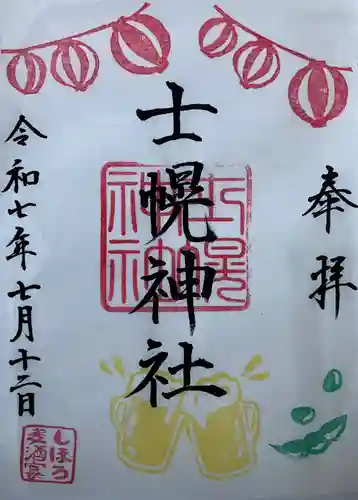 奉拝
士幌神社
士幌神社
令和七年七月十二日
しほろ
麦酒宴